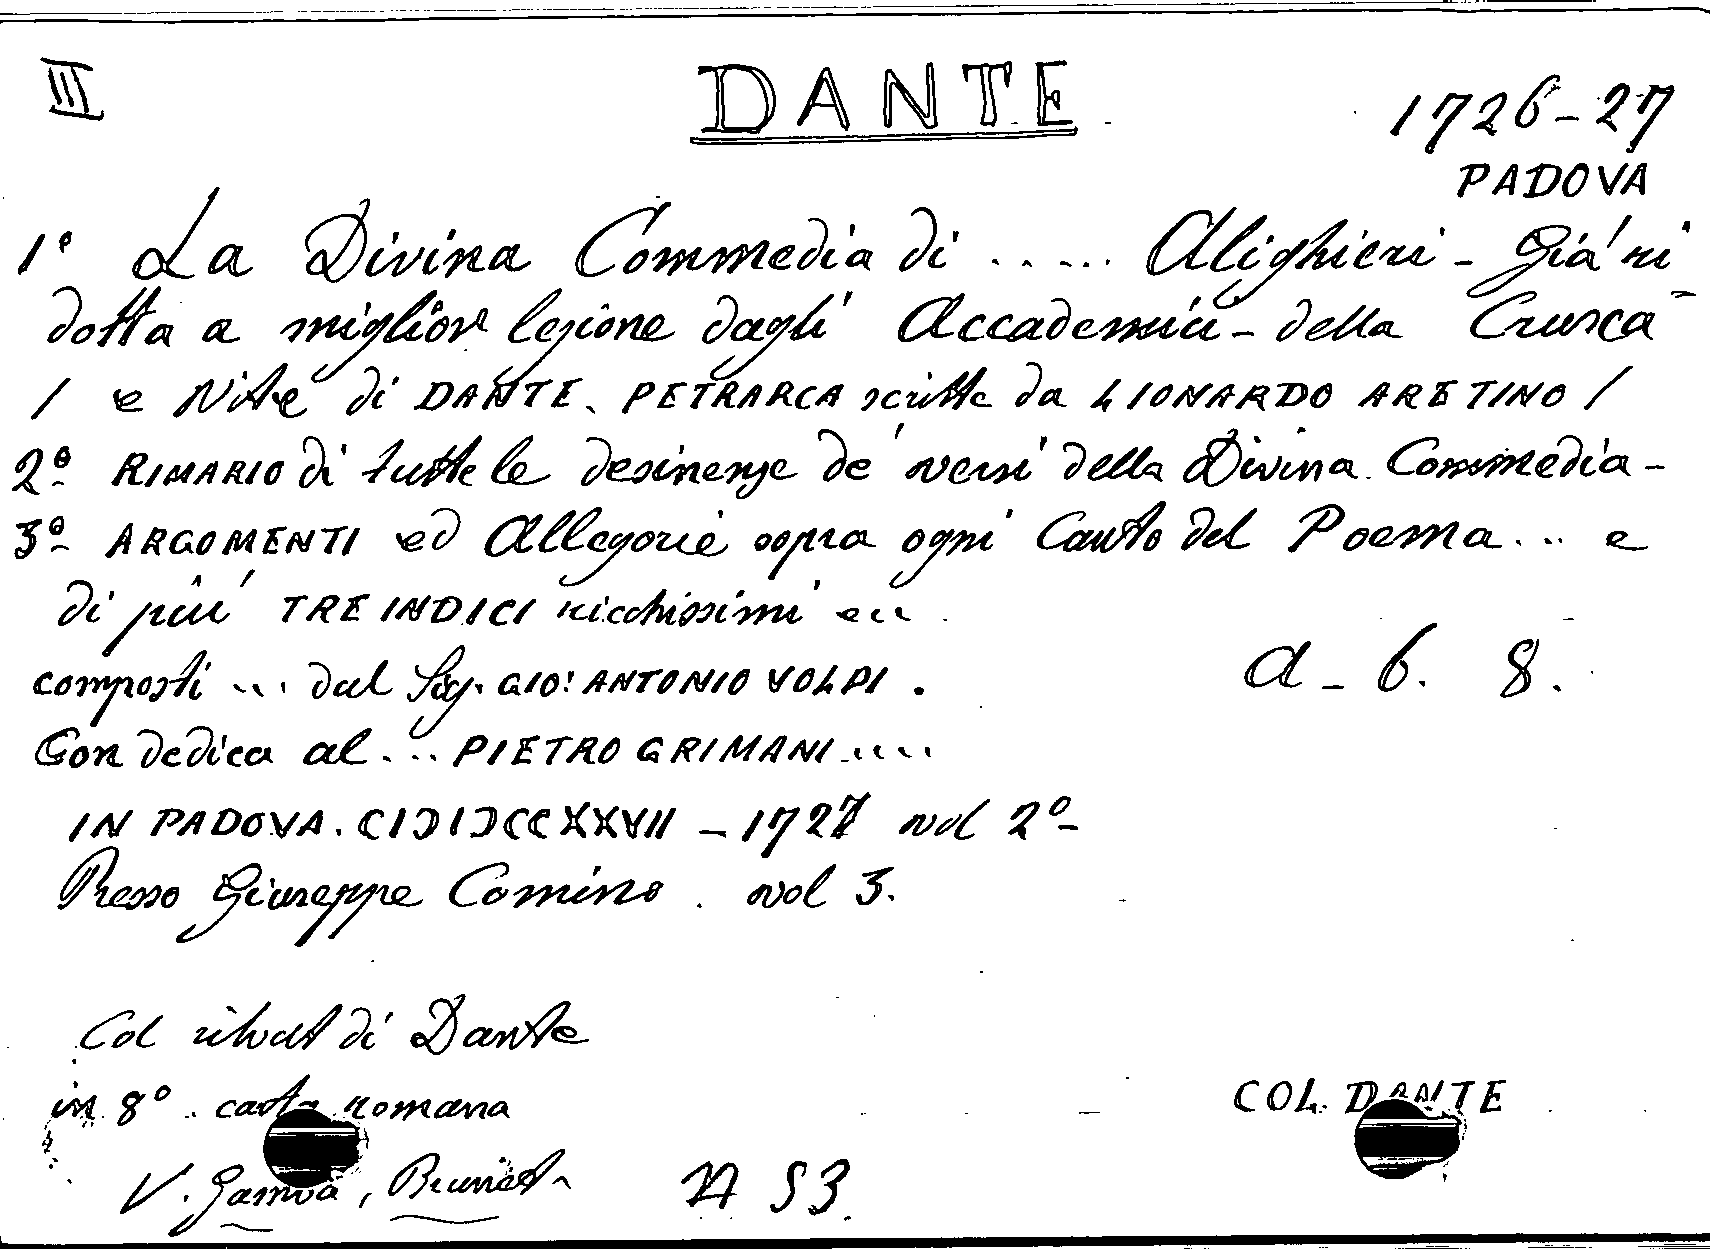 III
DANTE
1726-27
PADOVA
1º La Divina Commedia di ..... Alighieri - Giá ri
dotta a miglior lezione dagli Accademici - della Crusca
/ e Vite di DANTE. PETRARCA scritte da LIONARDO ARETINO /
2º RIMARIO di tutte le desinenze de' versi della Divina Commedia -
3º ARGOMENTI ed Allegorie sopra ogni Canto del Poema ... e
di piú TRE INDICI ricchissimi ecc
composti ... dal Sig. GIO: ANTONIO VOLPI.
a - 6. 8.
Con dedica al ... PIETRO GRIMANI ....
IN PADOVA. CIƆIƆCCXXVII - 1727 vol 2º-
Presso Giuseppe Comino. vol 3.
Col ritrat di Dante
in 8º. carta romana
COL. DANTE
V. Gamba, Brunet
N 53.